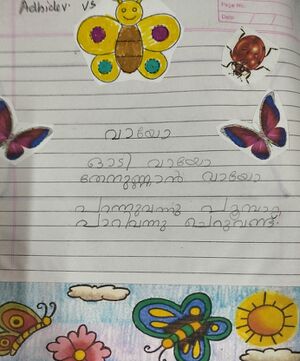 Adhidev vs
Page No.
Date
വായോ
ഓടി വായോ
തേനുണ്ണാൻ വായോ
പറന്നുവന്നു പൂമ്പാറ്റ
പാറിവന്നു ചെറുവണ്ട്.